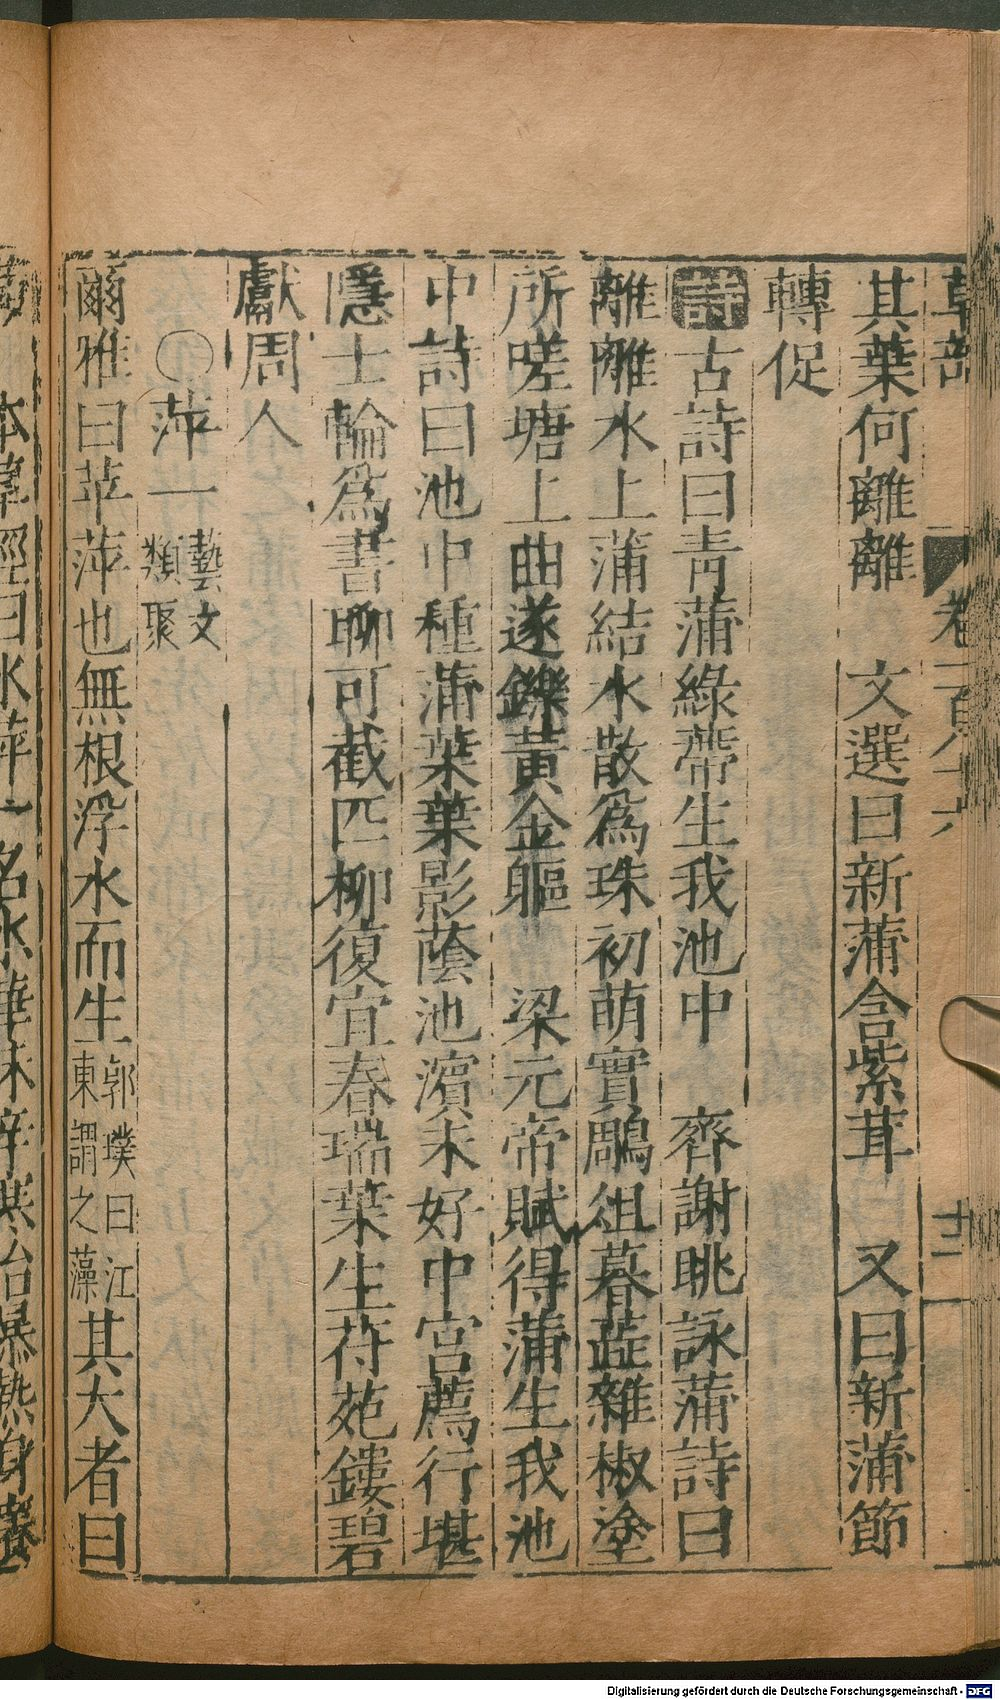 草部　卷一百八十六　十二
其葉何離離　文選曰新蒲含紫茸　又曰新蒲節
轉促
詩古詩曰青蒲綠蔕生我池中　齊謝眺詠蒲詩曰
離離水上蒲結水散爲珠初萌實鵰俎暮蕋雜椒塗
所嗟塘上曲遂鑠黃金軀　梁元帝賦得蒲生我池
中詩曰池中種蒲葉葉影蔭池濵未好中宮薦行堪
隱士輪爲書聊可截匹柳復宜春瑞葉生苻苑鏤碧
獻周人
○萍一藝文類聚
爾雅曰苹萍也無根浮水而生郭璞曰江東謂之藻其大者曰
本草經曰水萍一名水華味辛
Digitalisierung gefördert durch die Deutsche Forschungsgemeinschaft - DFG